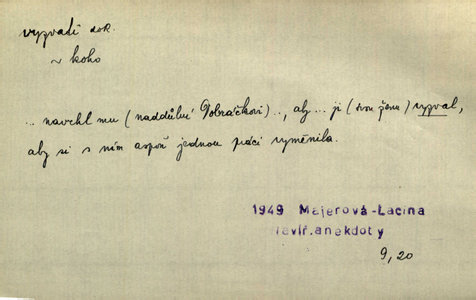 vyzvati dok.
~ koho
.. navrhl mu (naddůlní Dobráčkovi) .., aby ... ji (svou ženu) vyzval,
aby si s ním aspoň jednou práci vyměnila.
1949 Majerová-Lacina
Havíř.anekdoty
9, 20